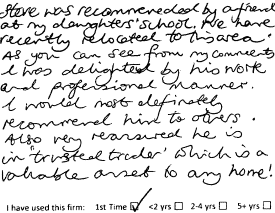 Steve was recommeneded by a friend
at my daughters' school, I've have
recently relocated to this area.
As you can see from my comments
I was delighted by his work
and professional manner.
I would most definately
recommend him to others.
Also very reassured he is
in 'trusted trader' which is a
valuable asset to any home!
I have used this firm: 1st Time ☑ <2 yrs ☐ 2-4 yrs ☐ 5+ yrs ☐